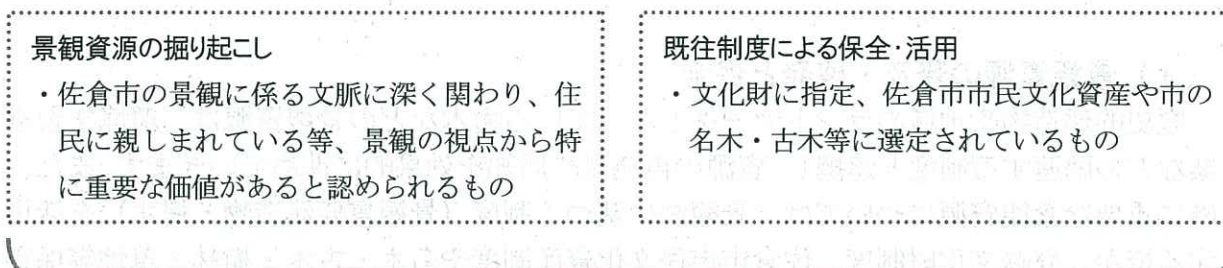 景観資源の掘り起こし
・佐倉市の景観に係る文脈に深く関わり、住
民に親しまれている等、景観の視点から特
に重要な価値があると認められるもの
既往制度による保全・活用
・文化財に指定、佐倉市市民文化資産や市の
名木・古木等に選定されているもの